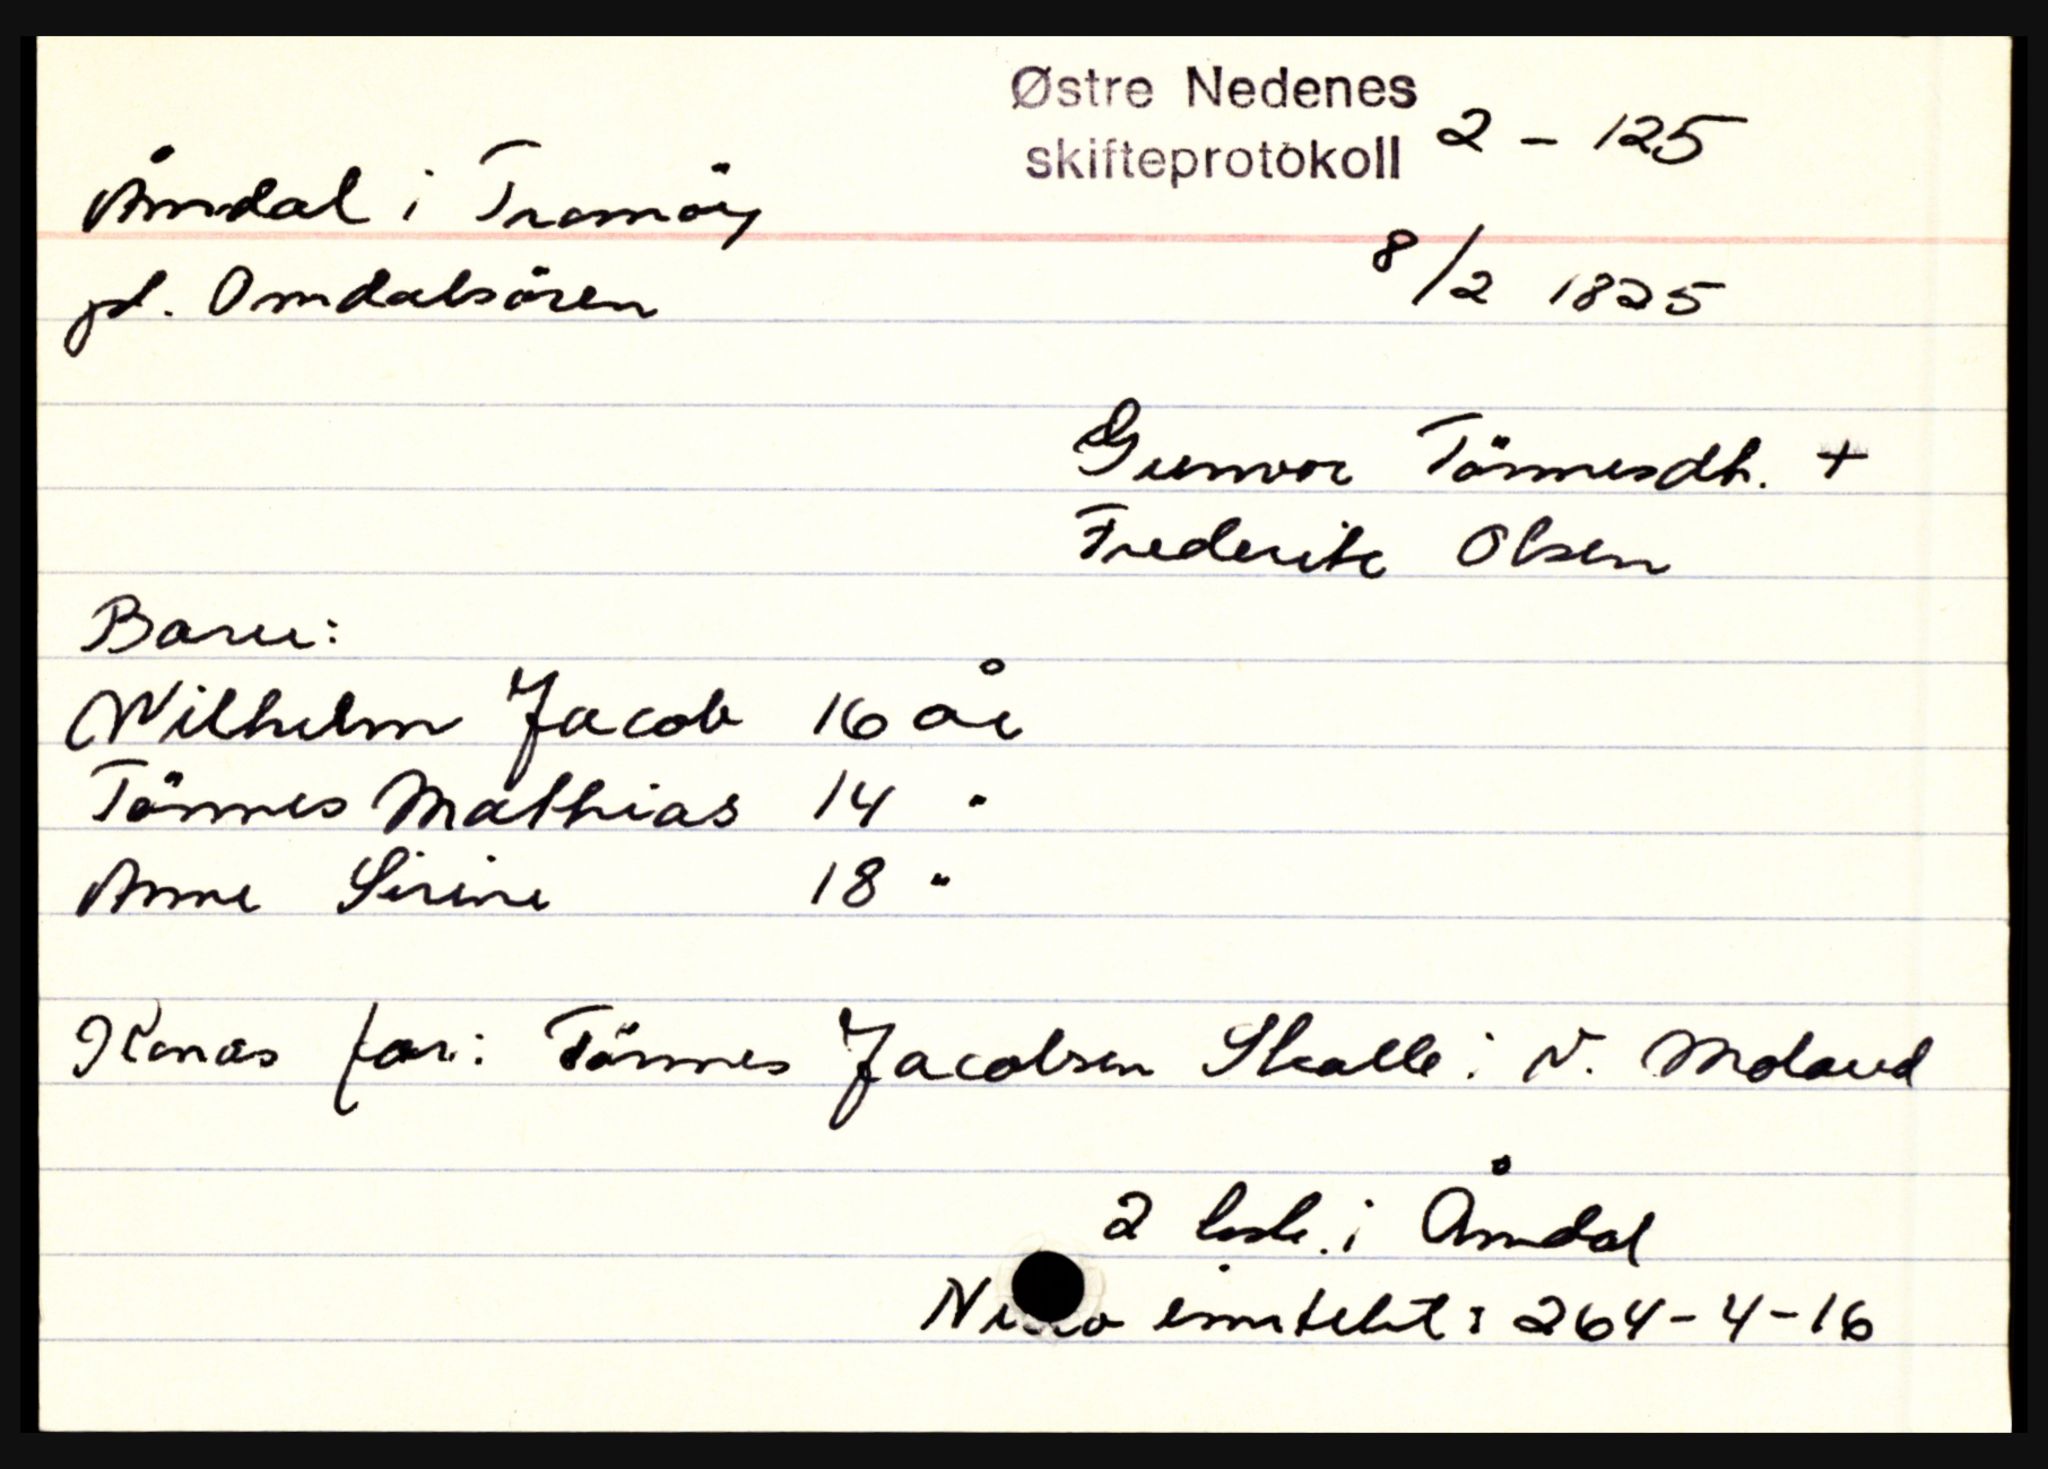 Østre Nedenes
skifteprotokoll 2 - 125
Åmdal i Tromöy
pl. Omdalsören
8/2 1825
Gunvor Tönnesdt. +
Frederik Olsen
Barn:
Wilhelm Jacob 16 år
Tönnes Mathias 14 "
Anne Sirine 18 "
Konas far: Tönnes Jacobsen Skalle i N. Moland
2 besk. i Åmdal
inntekt: 264-4-16